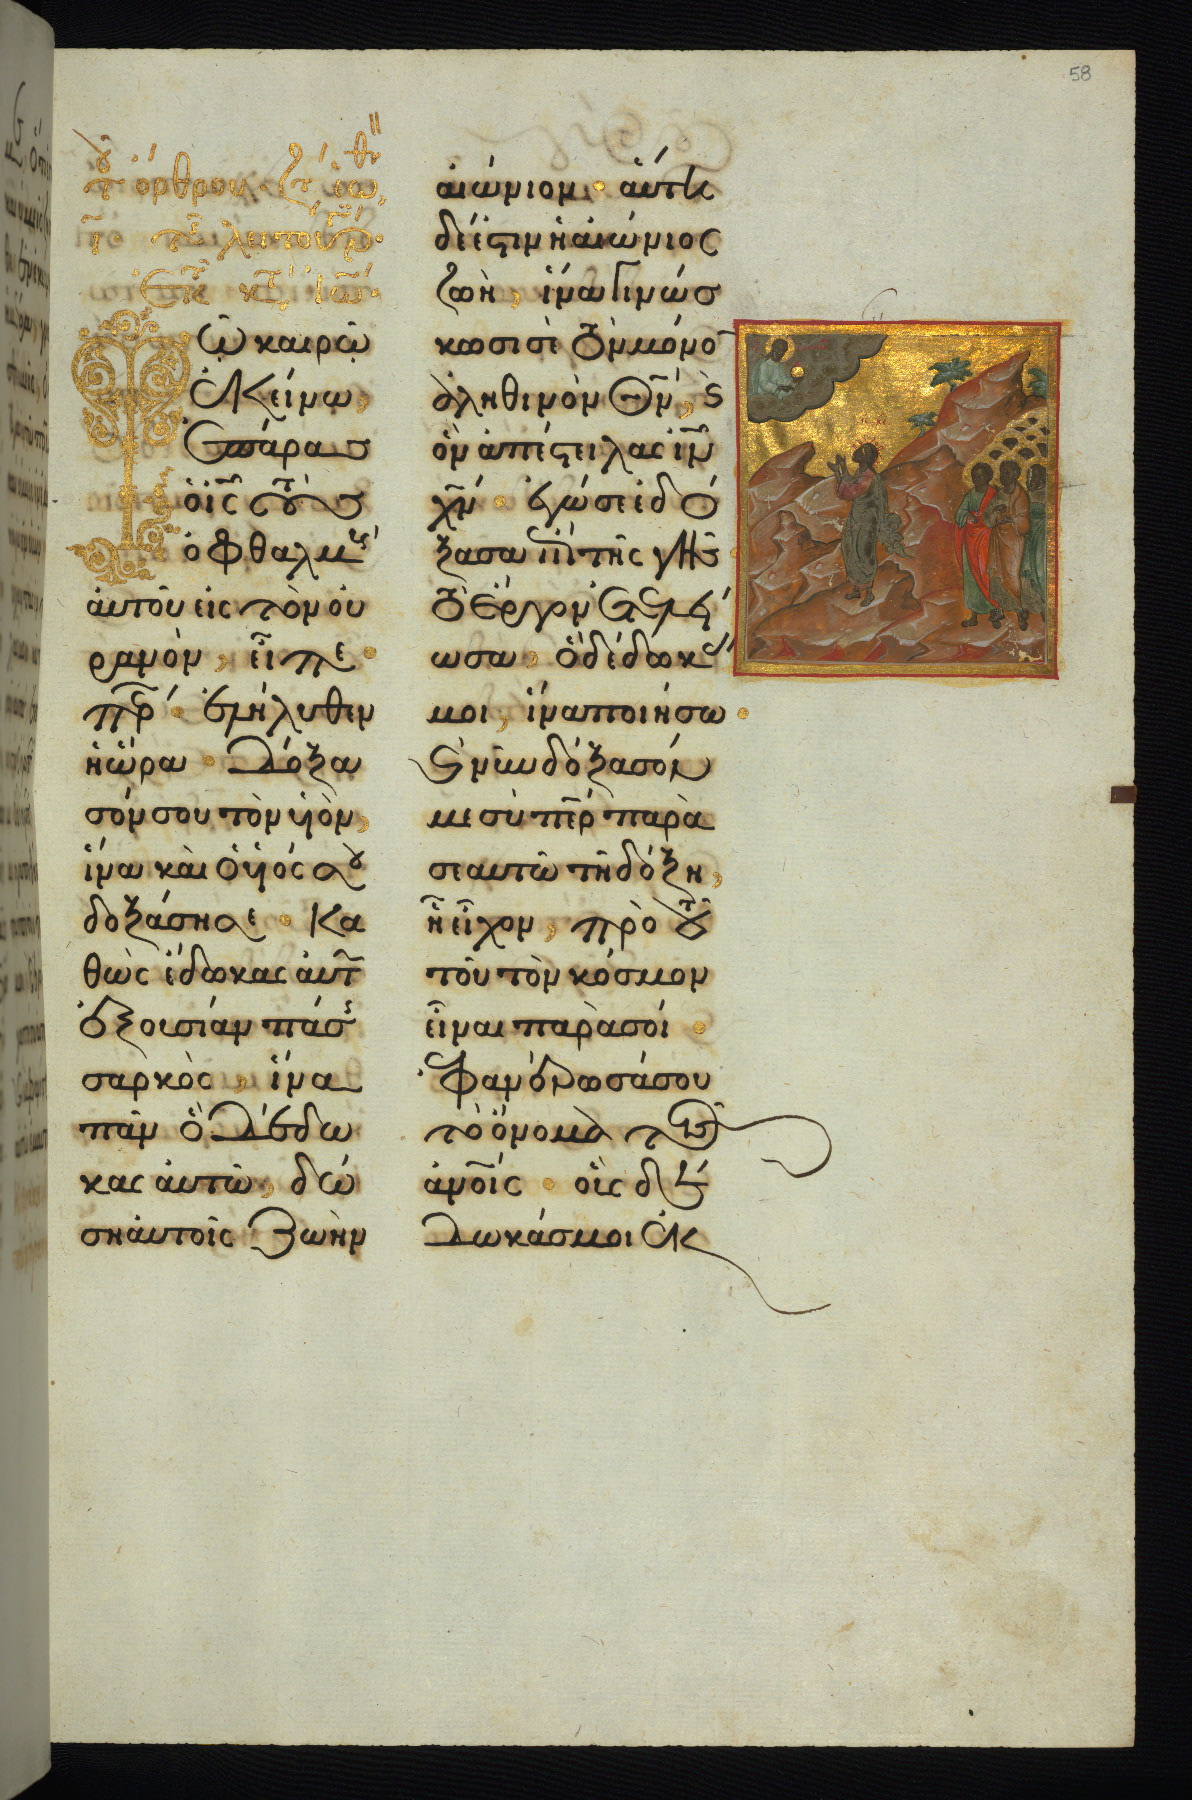 58
Τῷ καιρῷ
ἐκείνῳ,
ἐπάρας
ὁ ἰς τοὺς
ὀφθαλμοὺς
ἀυτοῦ εἰς τὸν οὐ
ρανὸν, εἶπε·
πέρ· ἐλήλυθεν
ἡ ὥρα· δόξα
σόν σου τὸν υἱὸν,
ἵνα καὶ ὁ υἱός σου
δοξάσῃ σε· Κα
θὼς ἔδωκας ἀυτῷ
ἐξουσίαν πάσης
σαρκὸς, ἵνα
πᾶν ὃ δέδω
κας ἀυτῷ, δώ
σῃ ἀυτοῖς ζωὴν
αἰώνιον· ἅυτη
δέ ἐστιν ἡ αἰώνιος
ζωὴ, ἵνα γινώσ
κωσι σὲ τὸν μόνον
ἀληθινὸν Θν, καὶ
ὃν ἀπέστειλας ιν
χν· ἐγώ σε ἐδό
ξασα ἐπὶ τῆς γῆς·
τὸ ἔργον ἐτελεί
ωσα, ὃ δέδωκάς
μοι, ἵνα ποιήσω·
καὶ νῦν δόξασόν
με σὺ πέρ παρὰ
σεαυτῷ τῇ δόξῃ,
ᾗ εἶχον, πρὸ τοῦ
τοῦ τὸν κόσμον
εἶναι παρὰ σοί·
Ἐφανέρωσά σου
τὸ ὄνομα τοῖς
ἀνοις· οὓς δέ
δωκάς μοι ἐκ